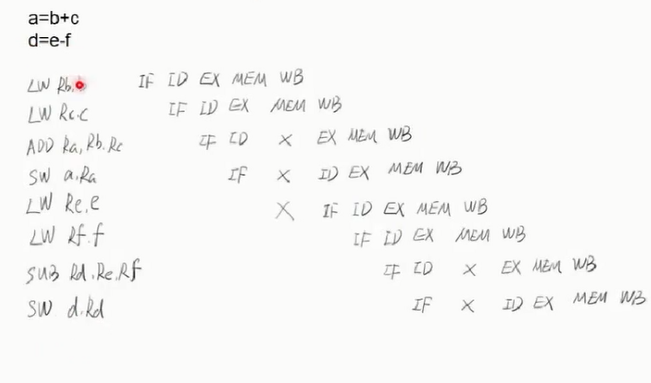 a=b+c
d=e-f
LW Rb. IF ID EX MEM WB
LW Rc.c IF ID EX MEM WB
ADD Ra,Rb.Rc IF ID X EX MEM WB
SW a.Ra IF X ID EX MEM WB
LW Re.e X IF ID EX MEM WB
LW Rf.f IF ID EX MEM WB
SUB Rd.Re.Rf IF ID X EX MEM WB
SW d.Rd IF X ID EX MEM WB